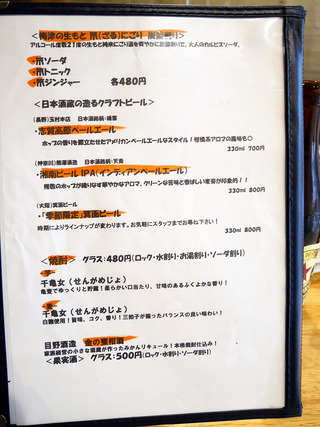 アルコール度数21度の生もと純米にごり酒を爽やかに炭酸割りで。大人のカルピスソーダ。
ソーダ
トニック
ジンジャー 各480円
<日本酒蔵の造るクラフトビール>
(長野)玉村本店 日本酒銘柄:縁喜
・志賀高原ペールエール
ホップの香りを際立たせたアメリカンペールエールなスタイル！柑橘系アロマの風味も〇
330ml 700円
(神奈川)熊澤酒造 日本酒銘柄:天青
・湘南ビール IPA(インディアンペールエール)
複数のホップが織りなす華やかなアロマ、グリーンな苦味と香ばしい麦芽が印象的！！
330ml 800円
(大阪)箕面ビール
・「季節限定」箕面ビール
時期によりラインナップが変わります。お気軽にスタッフまでお尋ね下さい！
330ml 800円
<焼酎> グラス:480円(ロック・水割り・お湯割り・ソーダ割り)
千亀女(せんがめじょ)
甕壺でゆっくりと貯蔵！柔らかい口当たり、甘味のあるふくよかな香り！
千亀女(せんがめじょ)
白麹使用！旨味、コク、香り！三拍子が揃ったバランスの良い味わい！
目野酒造 金の蜜柑酒
家族経営の小さな酒蔵が作ったみかんリキュール！本格焼酎仕込み！
<果実酒> グラス:500円(ロック・水割り・ソーダ割り)